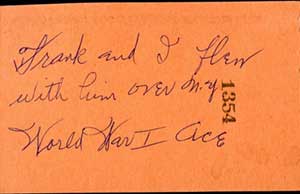 Frank and I flew
with him over N.Y.
World War I Ace
1354